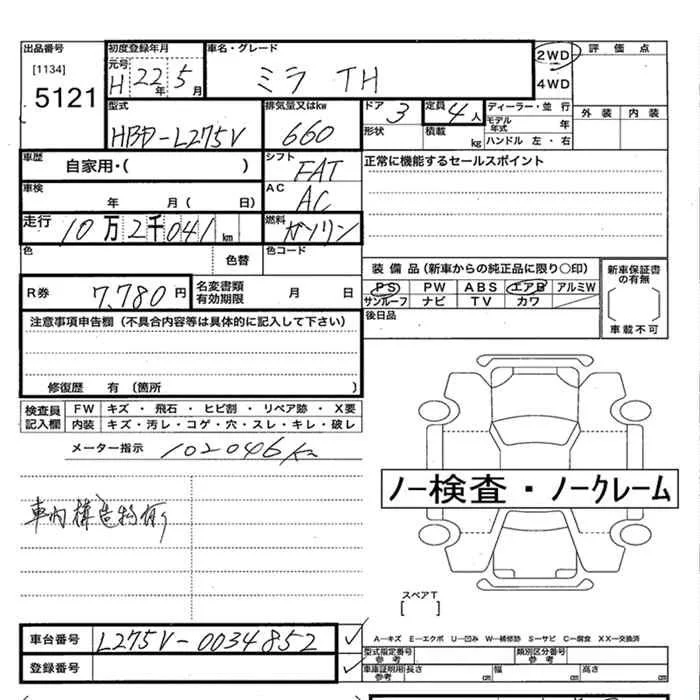 出品番号 初度登録年月 車名・グレード 2WD 評価点
[1134] 元号 H 22年 5月 ミラ TH 4WD
5121
型式 排気量又はkw ドア 3 定員 4人 ディーラー・並行 外装 内装
HBD-L275V 660 形状 積載 kg モデル年式 年
ハンドル 左・右
車歴 自家用・( ) シフト FAT 正常に機能するセールスポイント
車検 年 月( 日) AC AC
走行 10万2千041km 燃料 ガソリン
色 色替 色コード
装備品(新車からの純正品に限り○印) 新車保証書の有無
R券 7,780円 名変書類有効期限 月 日 PS PW ABS エアB アルミW
サンルーフ ナビ TV カワ
注意事項申告欄(不具合内容等は具体的に記入して下さい) 後日品 車載不可
修復歴 有(箇所 )
検査員記入欄 FW キズ・飛石・ヒビ割・リペア跡・X要
内装 キズ・汚レ・コゲ・穴・スレ・キレ・破レ
メーター指示 102046K
ノー検査・ノークレーム
車内構造物有り
スペアT
[ ]
車台番号 L275V-0034852
A―キズ E―エクボ U―凹み W―補修跡 S―サビ C―腐食 XX―交換済
登録番号 型式指定番号参考 類別区分番号参考
車庫証明用参考 長さ cm 幅 cm 高さ cm